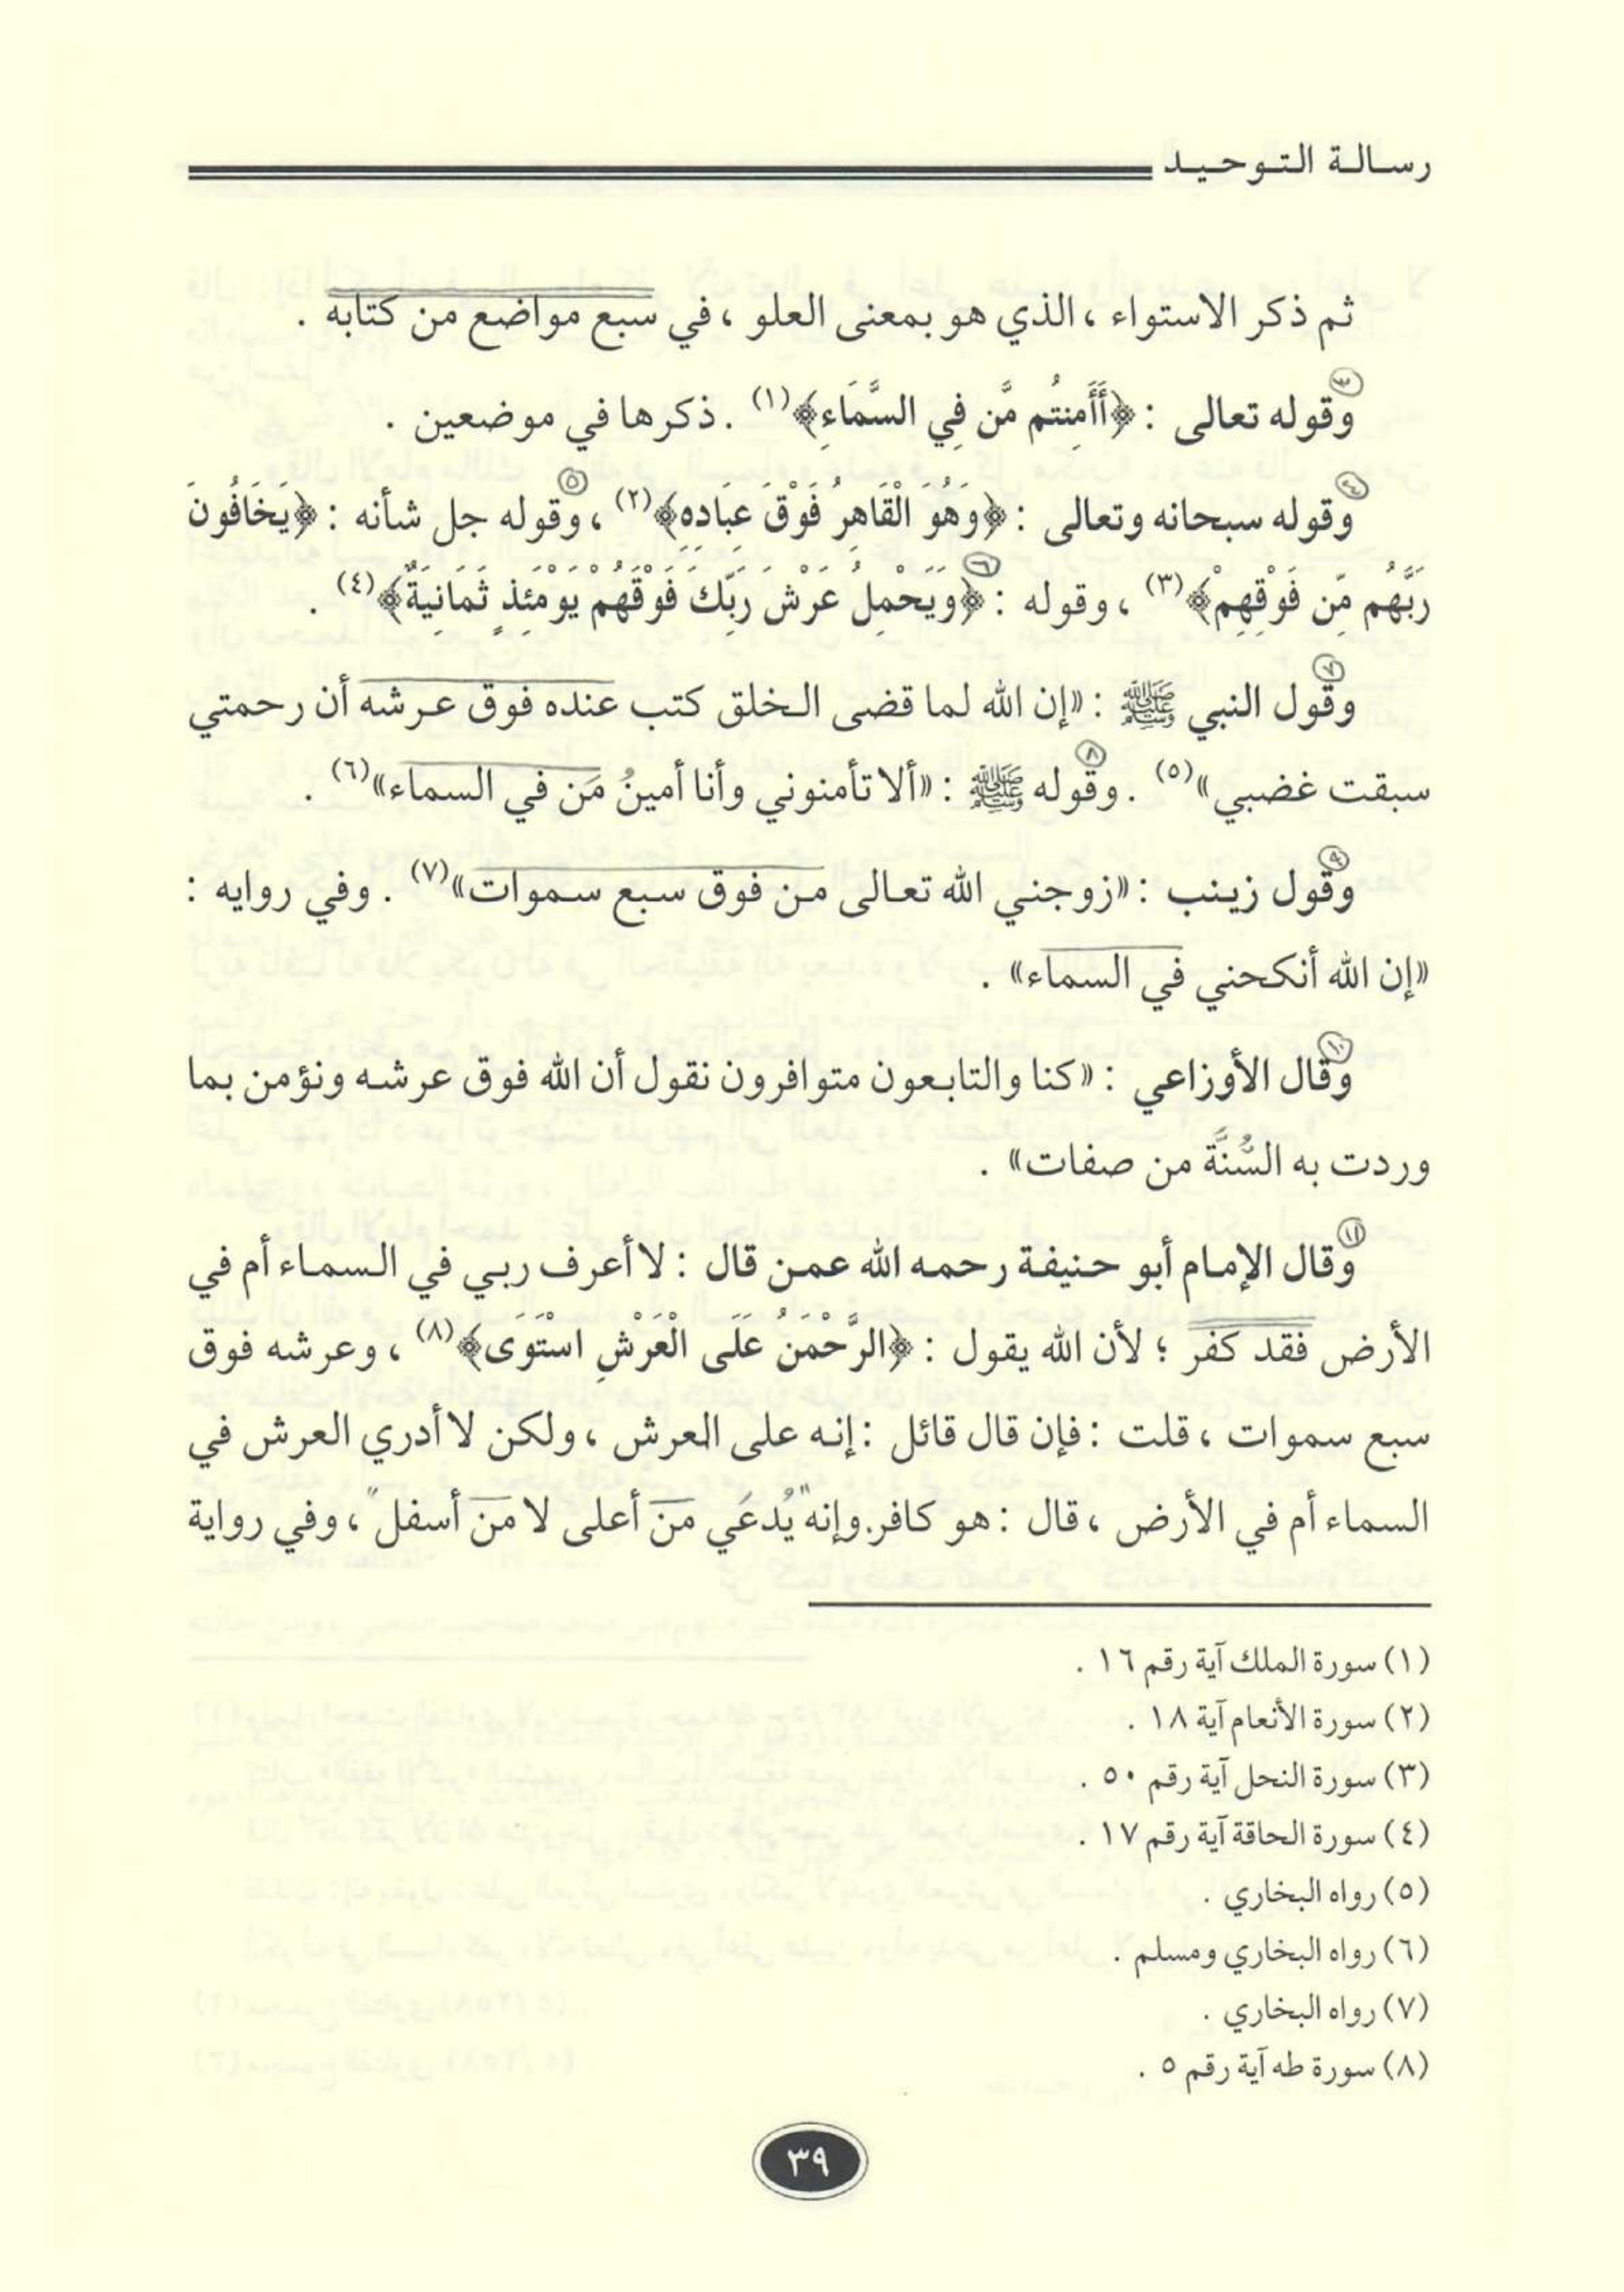 رسالة التوحيد
ثم ذكر الاستواء ، الذي هو بمعنى العلو ، في سبع مواضع من كتابه .
٣
وقوله تعالى : ﴿أَأَمِنتُم مَّن فِي السَّمَاءِ﴾(١) . ذكرها في موضعين .
٤ ٥
وقوله سبحانه وتعالى : ﴿وَهُوَ الْقَاهِرُ فَوْقَ عِبَادِهِ﴾(٢) ، وقوله جل شأنه : ﴿يَخَافُونَ
٦
رَبَّهُم مِّن فَوْقِهِمْ﴾(٣) ، وقوله : ﴿وَيَحْمِلُ عَرْشَ رَبِّكَ فَوْقَهُمْ يَوْمَئِذٍ ثَمَانِيَةٌ﴾(٤) .
٧
وقول النبي ﷺ : «إن الله لما قضى الخلق كتب عنده فوق عرشه أن رحمتي
٨
سبقت غضبي»(٥) . وقوله ﷺ : «ألا تأمنوني وأنا أمينُ مَن في السماء»(٦) .
٩
وقول زينب : «زوجني الله تعالى من فوق سبع سموات»(٧) . وفي روايه :
«إن الله أنكحني في السماء» .
١٠
وقال الأوزاعي : «كنا والتابعون متوافرون نقول أن الله فوق عرشه ونؤمن بما
وردت به السُّنَّة من صفات» .
١١
وقال الإمام أبو حنيفة رحمه الله عمن قال : لا أعرف ربي في السماء أم في
الأرض فقد كفر ؛ لأن الله يقول : ﴿الرَّحْمَنُ عَلَى الْعَرْشِ اسْتَوَى﴾(٨) ، وعرشه فوق
سبع سموات ، قلت : فإن قال قائل : إنه على العرش ، ولكن لا أدري العرش في
السماء أم في الأرض ، قال : هو كافر. وإنه "يُدعَي مَن أعلى لا مَن أسفل" ، وفي رواية
(١) سورة الملك آية رقم ١٦ .
(٢) سورة الأنعام آية ١٨ .
(٣) سورة النحل آية رقم ٥٠ .
(٤) سورة الحاقة آية رقم ١٧ .
(٥) رواه البخاري .
(٦) رواه البخاري ومسلم .
(٧) رواه البخاري .
(٨) سورة طه آية رقم ٥ .
٣٩